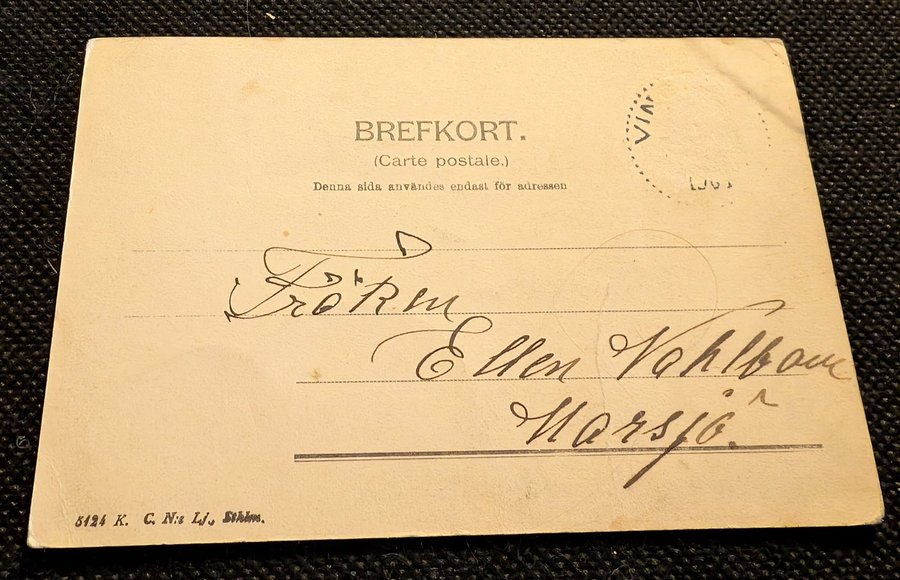 BREFKORT.
(Carte postale.)
Denna sida användes endast för adressen
VIN
Fröken
Ellen Vahlbom
Marsjö.
5124 K. C. N:s Lj., Sthlm.